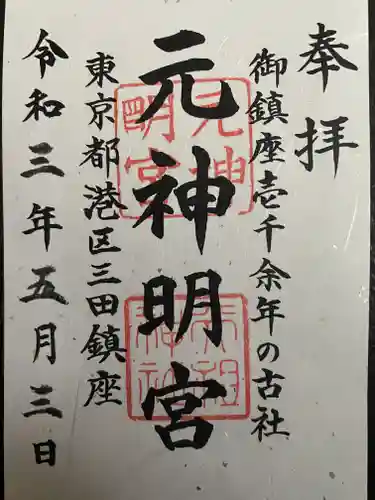 奉拝
御鎮座壱千余年の古社
元神明宮
東京都港区三田鎮座
令和三年五月三日
元神
明宮